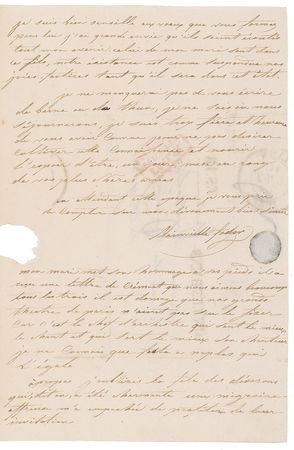 je suis bien sensible aux vœux que vous formez
pour lui j'ai grande envie qu'ils soient écoutés
tout mon avenir celui de mon mari sont dans
ce fils, notre existence est comme suspendue nos
joies factices tant qu'il sera dans cet état.
je ne manquerai pas de vous écrire
de berne ou de thun, je ne sais où nous
séjournerons je suis trop fière et heureuse
de vous avoir connue pour ne pas désirer
cultiver cette connaissance et nourrir
l'espoir d'être un jour mise au rang
de vos plus chères amies
en attendant cette époque je vous prie
de compter sur mon dévouement bien sincère
Mainvielle fodor
mon mari met son hommage a vos pieds il a
reçu une lettre de que nous aimons beaucoup
tous les trois il est dommage que nos grands
théatre de paris n'aient pas su le fixer
car c'est le chef d'orchestre qui sent le mieux
le chant et qui sert le mieux son chanteur
je ne connais que festa a naples qui
l'égale
apropos j'oubliais la fête des
qui, dit on, a été charmante une migraine
affreuse m'a empechée de profiter de leur
invitation